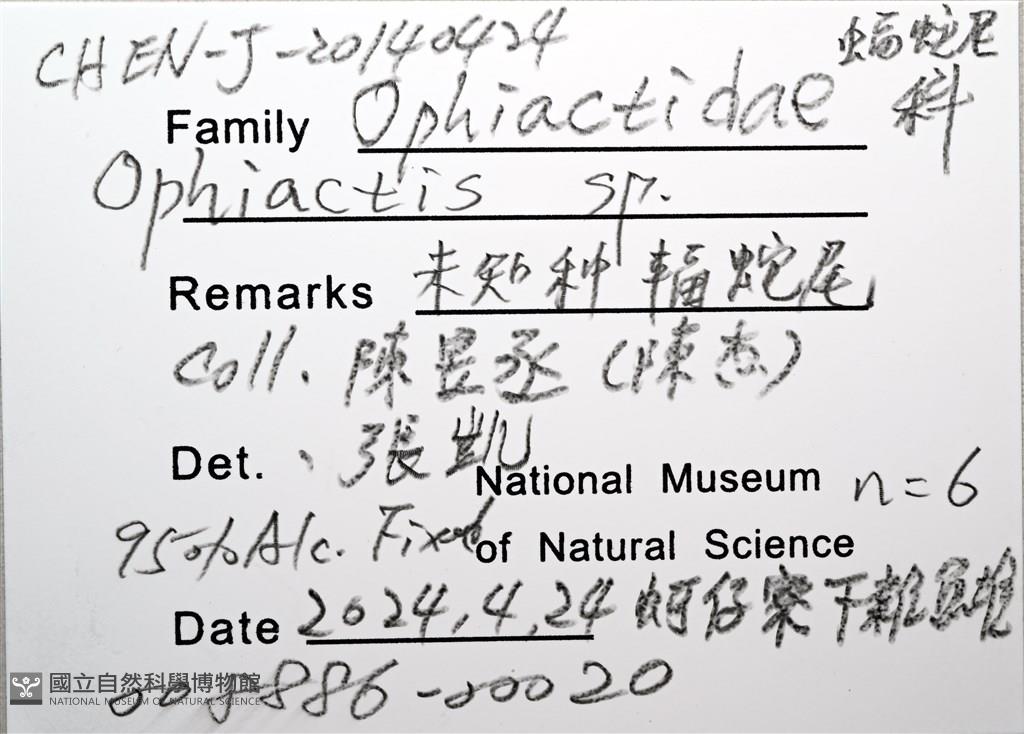 CHEN-J-20140424
蝠蛇尾科
Family Ophiactidae
Ophiactis sp.
Remarks 未知种 辐蛇尾
Coll. 陳昱丞 (陳杰)
Det. 、張凱
National Museum n=6
95% Alc. Fixed of Natural Science
Date 2024.4.24 蚵仔寮下雜魚堆
5886-00020
國立自然科學博物館
NATIONAL MUSEUM OF NATURAL SCIENCE